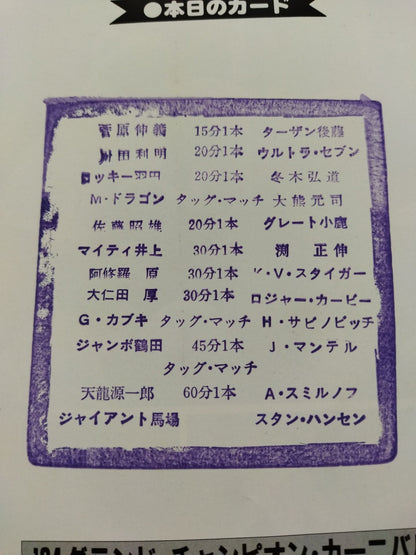 ●本日のカード
菅原伸義 15分1本 ターザン後藤
川田利明 20分1本 ウルトラ・セブン
ロッキー羽田 20分1本 冬木弘道
M・ドラゴン タッグ・マッチ 大熊元司
佐藤昭雄 20分1本 グレート小鹿
マイティ井上 30分1本 渕正伸
阿修羅原 30分1本 K・V・スタイガー
大仁田厚 30分1本 ロジャー・カービー
G・カブキ タッグ・マッチ H・サビノビッチ
ジャンボ鶴田 45分1本 J・マンテル
タッグ・マッチ
天龍源一郎 60分1本 A・スミルノフ
ジャイアント馬場 スタン・ハンセン
'84グランド・チャンピオン・カーニバル